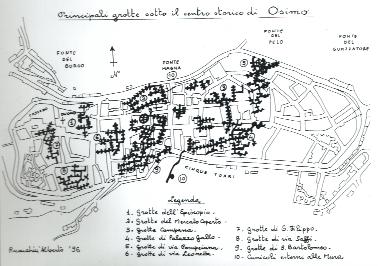 Principali grotte sotto il centro storico di Osimo
FONTE
DEL
BORGO
N
FONTE
MAGNA
FONTE
DEL
PELO
FONTE
DEL
GUAZZATORE
CINQUE TORRI
Legenda
1. Grotte dell'Episcopio
2. Grotte del Mercato Coperto
3. Grotte Campana
4. Grotte di Palazzo Gallo
5. Grotte di via Pompeiana
6. Grotte di via Leonetta
7. Grotte di S. Filippo
8. Grotte di via Saffi
9. Grotte di S. Bartolomeo
10. Cunicoli esterni alle Mura
Alberto '96